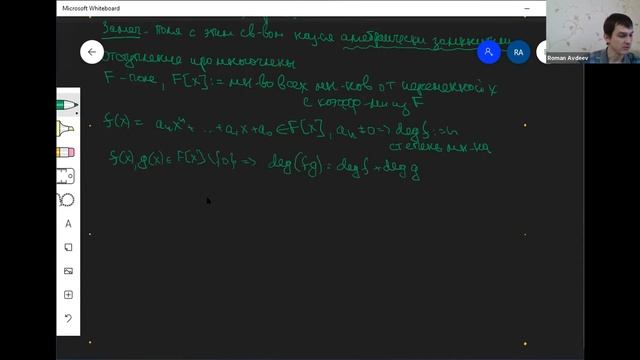 Microsoft Whiteboard
Замеч. Поля с этим св-вом наз-ся алгебраически замкнутыми
отступление про многочлены
F - поле, F[x] := мн-во всех мн-нов от переменной x
с коэфф-ми из F
f(x) = aₙxⁿ + ... + a₁x + a₀ ∈ F[x], aₙ ≠ 0 => deg f := n
степень мн-на
f(x), g(x) ∈ F[x] \ {0} => deg(fg) = deg f + deg g
RA
Roman Avdeev
A